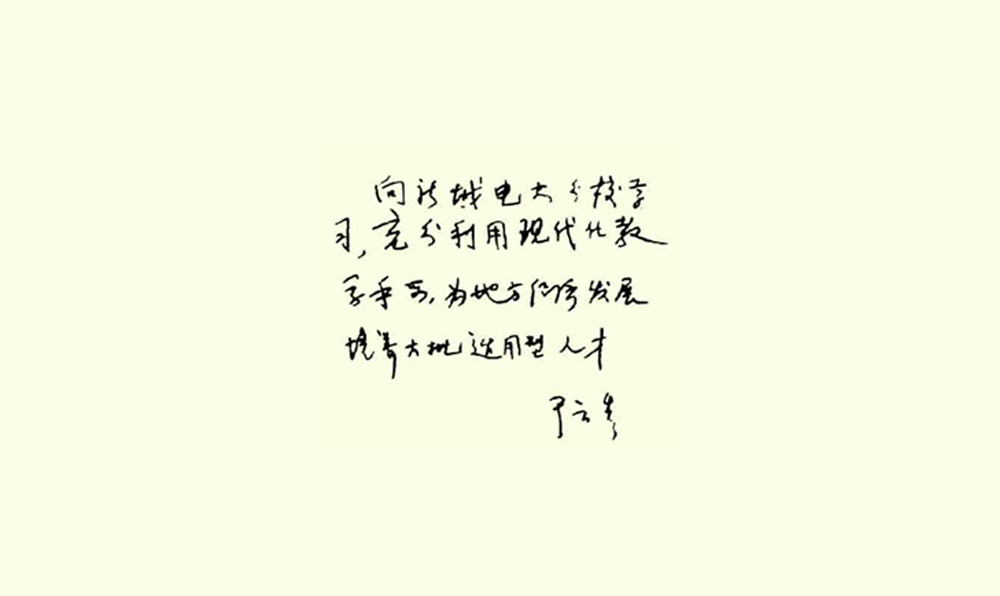 向城电大分校学
习,充分利用现代化教
学手段,为地方经济发展
培养大批适用型人才